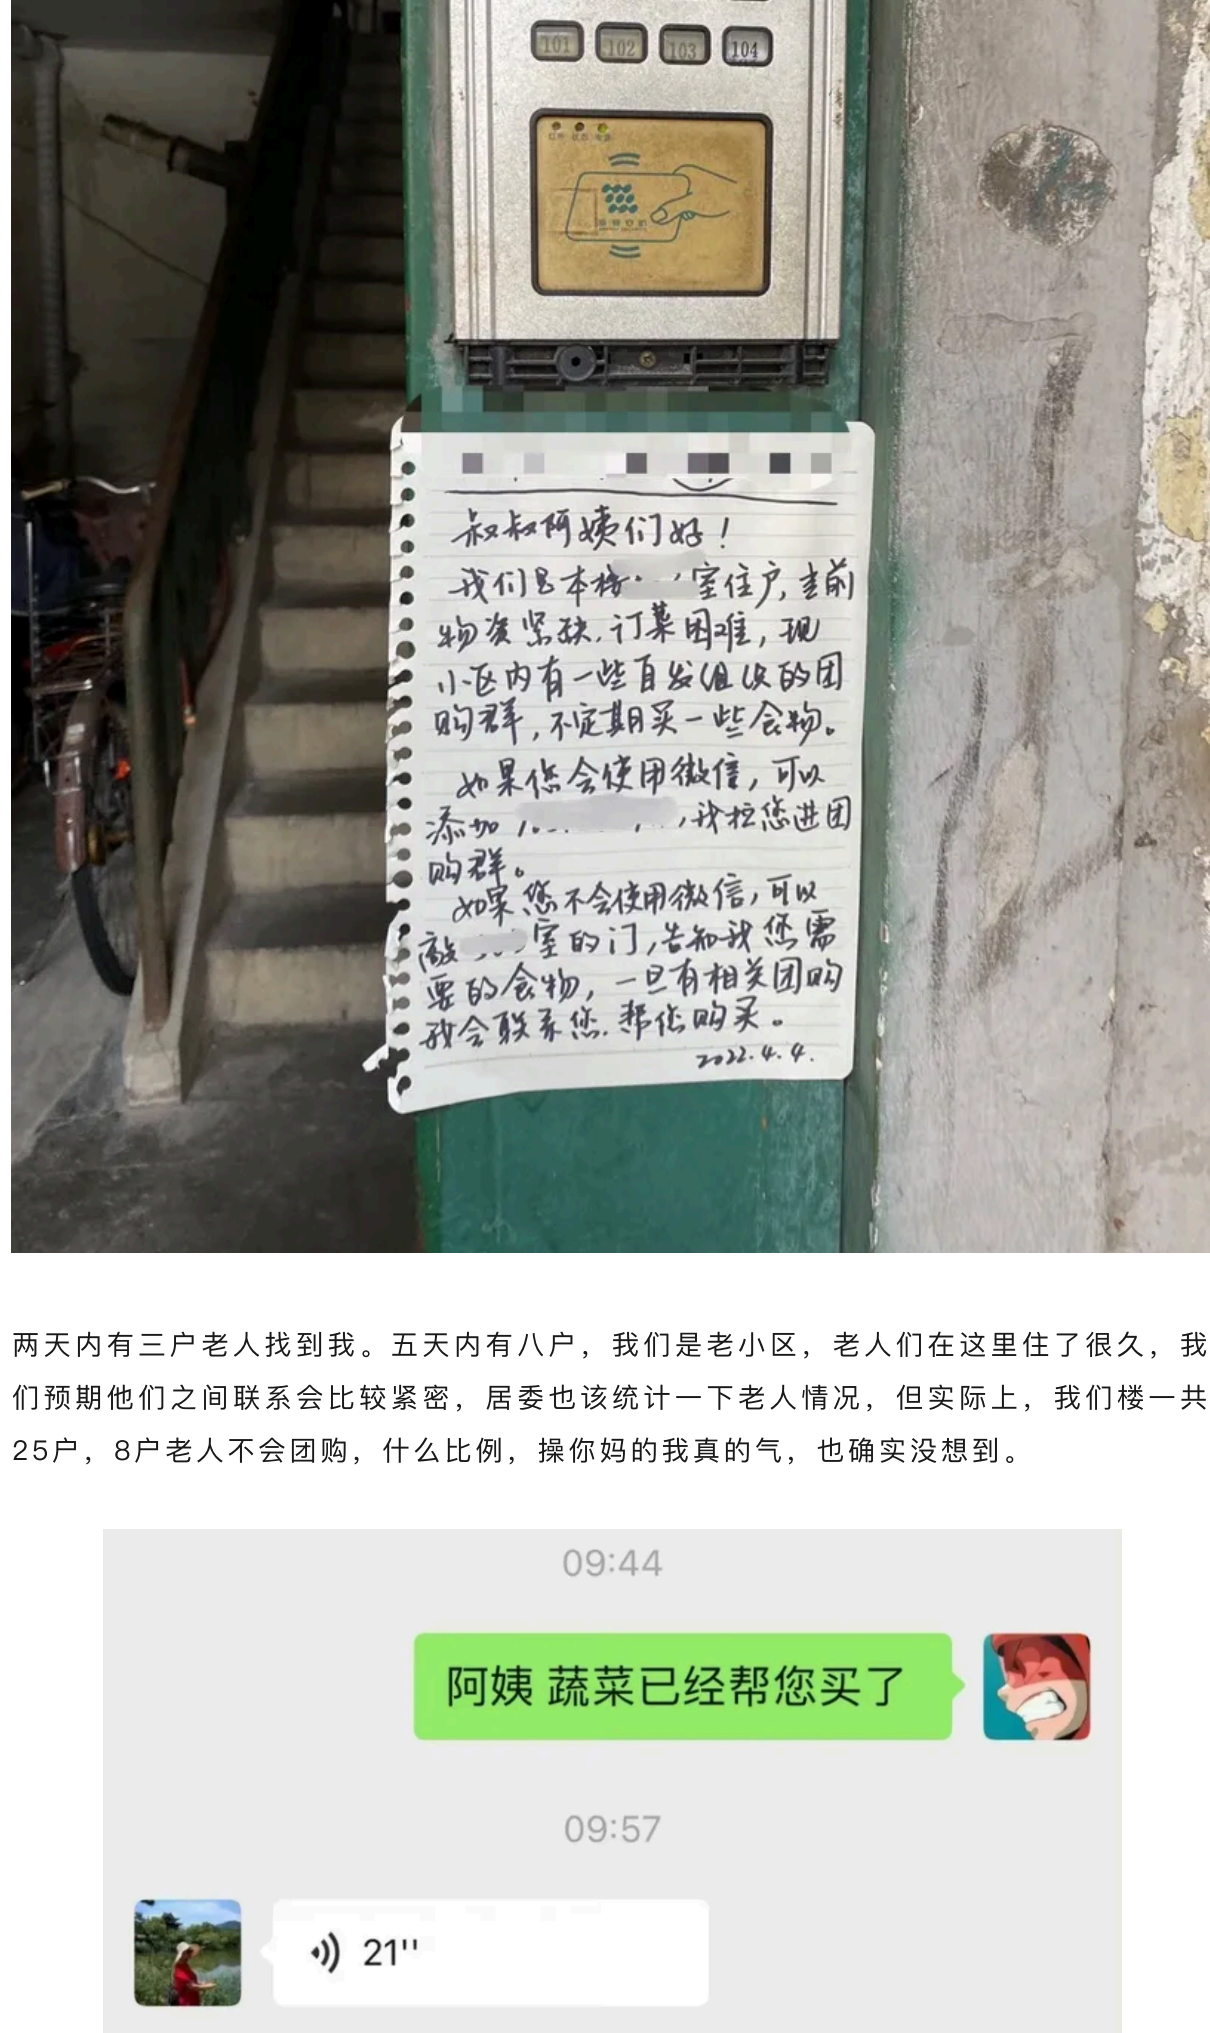 101 102 103 104
叔叔阿姨们好！
我们是本楼 室住户，当前
物资紧缺，订菜困难，现
小区内有一些自发组织的团
购群，不定期买一些食物。
如果您会使用微信，可以
添加 ，我拉您进团
购群。
如果您不会使用微信，可以
敲 室的门，告知我您需
要的食物，一旦有相关团购
我会联系您，帮您购买。
2022.4.4.
两天内有三户老人找到我。五天内有八户，我们是老小区，老人们在这里住了很久，我
们预期他们之间联系会比较紧密，居委也该统计一下老人情况，但实际上，我们楼一共
25户，8户老人不会团购，什么比例，操你妈的我真的气，也确实没想到。
09:44
阿姨 蔬菜已经帮您买了
09:57
21''